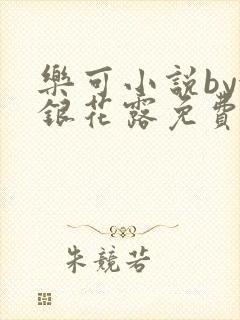 樂可小説by
銀花露免費
朱競若